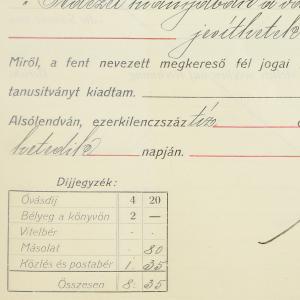 jevéltetik
Miről, a fent nevezett megkereső fél jogai
tanusitványt kiadtam.
Alsólendván, ezerkilenczszáz tiz
hetedik napján.
Dijjegyzék:
Óvásdij 4 20
Bélyeg a könyvön 2 —
Vitelbér . .
Másolat . 80
Közlés és postabér 1. 35
Összesen 8. 35